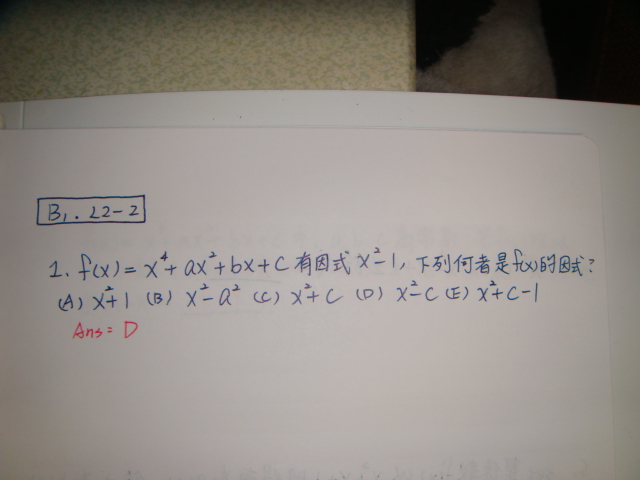 B1. L2-2
1. f(x) = x⁴+ax²+bx+c 有因式 x²-1, 下列何者是 f(x)的因式?
(A) x²+1 (B) x²-a² (C) x²+c (D) x²-c (E) x²+c-1
Ans = D